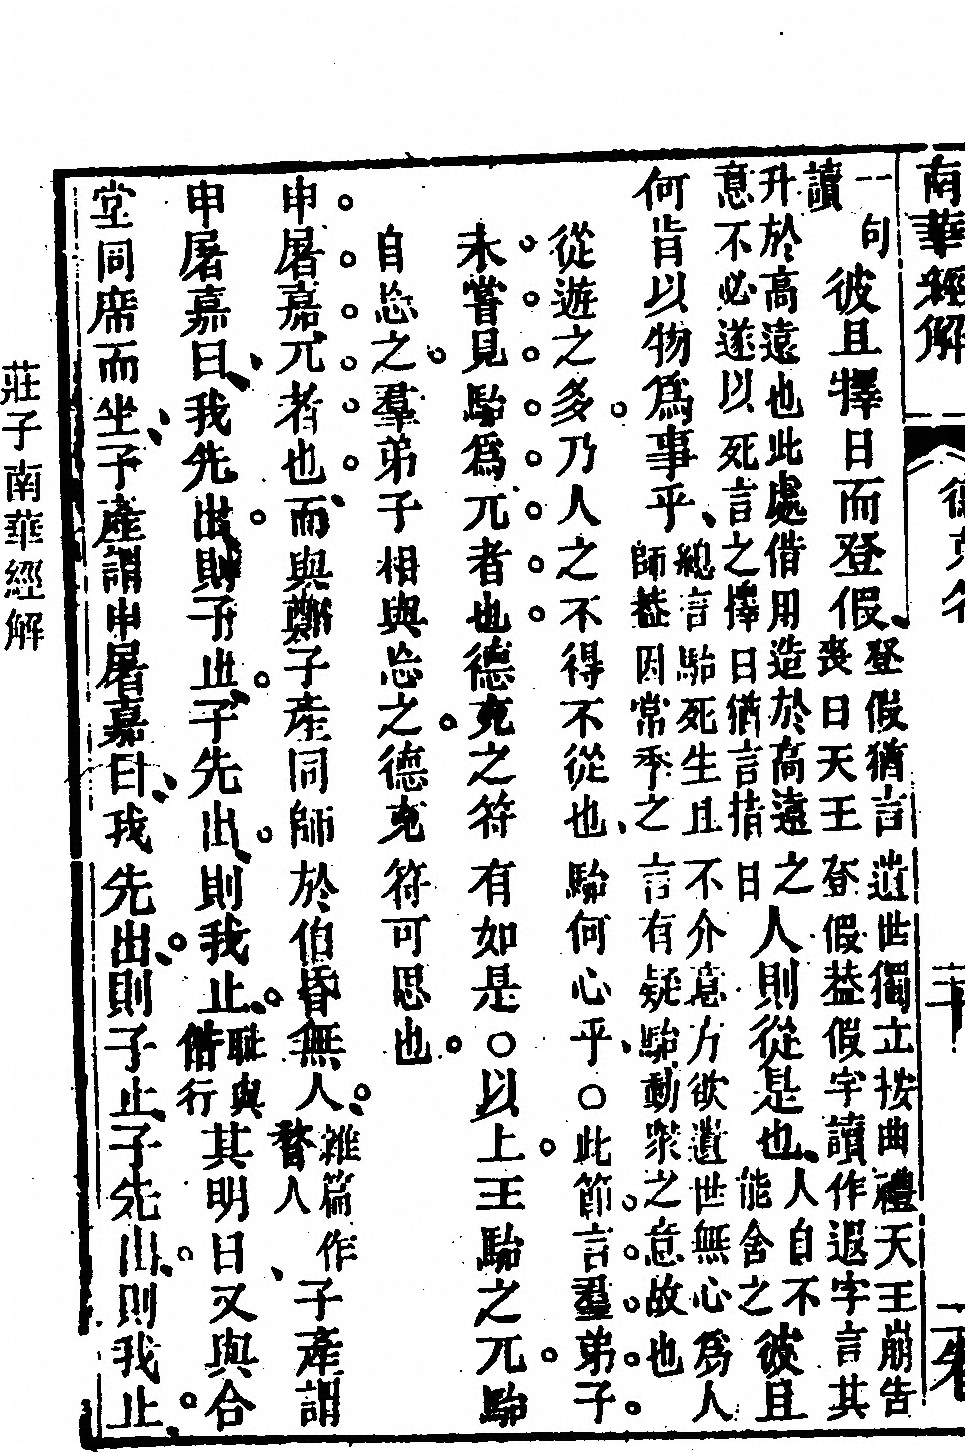 南華經解
一句
讀
彼且擇日而登假
登假猶言遊世獨立按曲禮天王崩告
喪曰天王登假益假字讀作遐字言其
升於高遠也此處借用造於高遠之
意不必遂以死言之擇日猶言指日
人則從是也
人自不
能舍之
彼且
何肯以物爲事乎
總言駘死生且不介意方欲遺世無心爲人
師益因常季之言有疑駘動衆之意故也
從遊之多乃人之不得不從也駘何心乎○此節言羣弟子
未嘗見駘爲兀者也德充之符有如是○以上王駘之兀駘
自忘之羣弟子相與忘之德充符可思也
申屠嘉兀者也而與鄭子產同師於伯昏無人
雜篇作
瞀人
子產謂
申屠嘉曰我先出則子止子先出則我止
恥與
偕行
其明日又與合
堂同席而坐子產謂申屠嘉曰我先出則子止子先出則我止
莊子南華經解